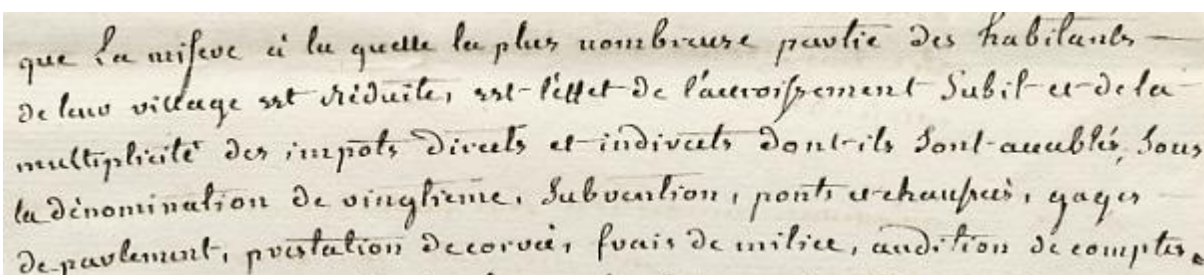 que La misere à la quelle la plus nombreuse partie des habitants —
de leur village est réduite, est l'effet de l'accroissement Subit et de la
multiplicité des impots directs et indirects dont ils Sont accablés, Sous
la dénomination de vingtieme, Subvention, ponts et chaussées, gages
de parlement, prestation de corvée, frais de milice, audition de comptes,